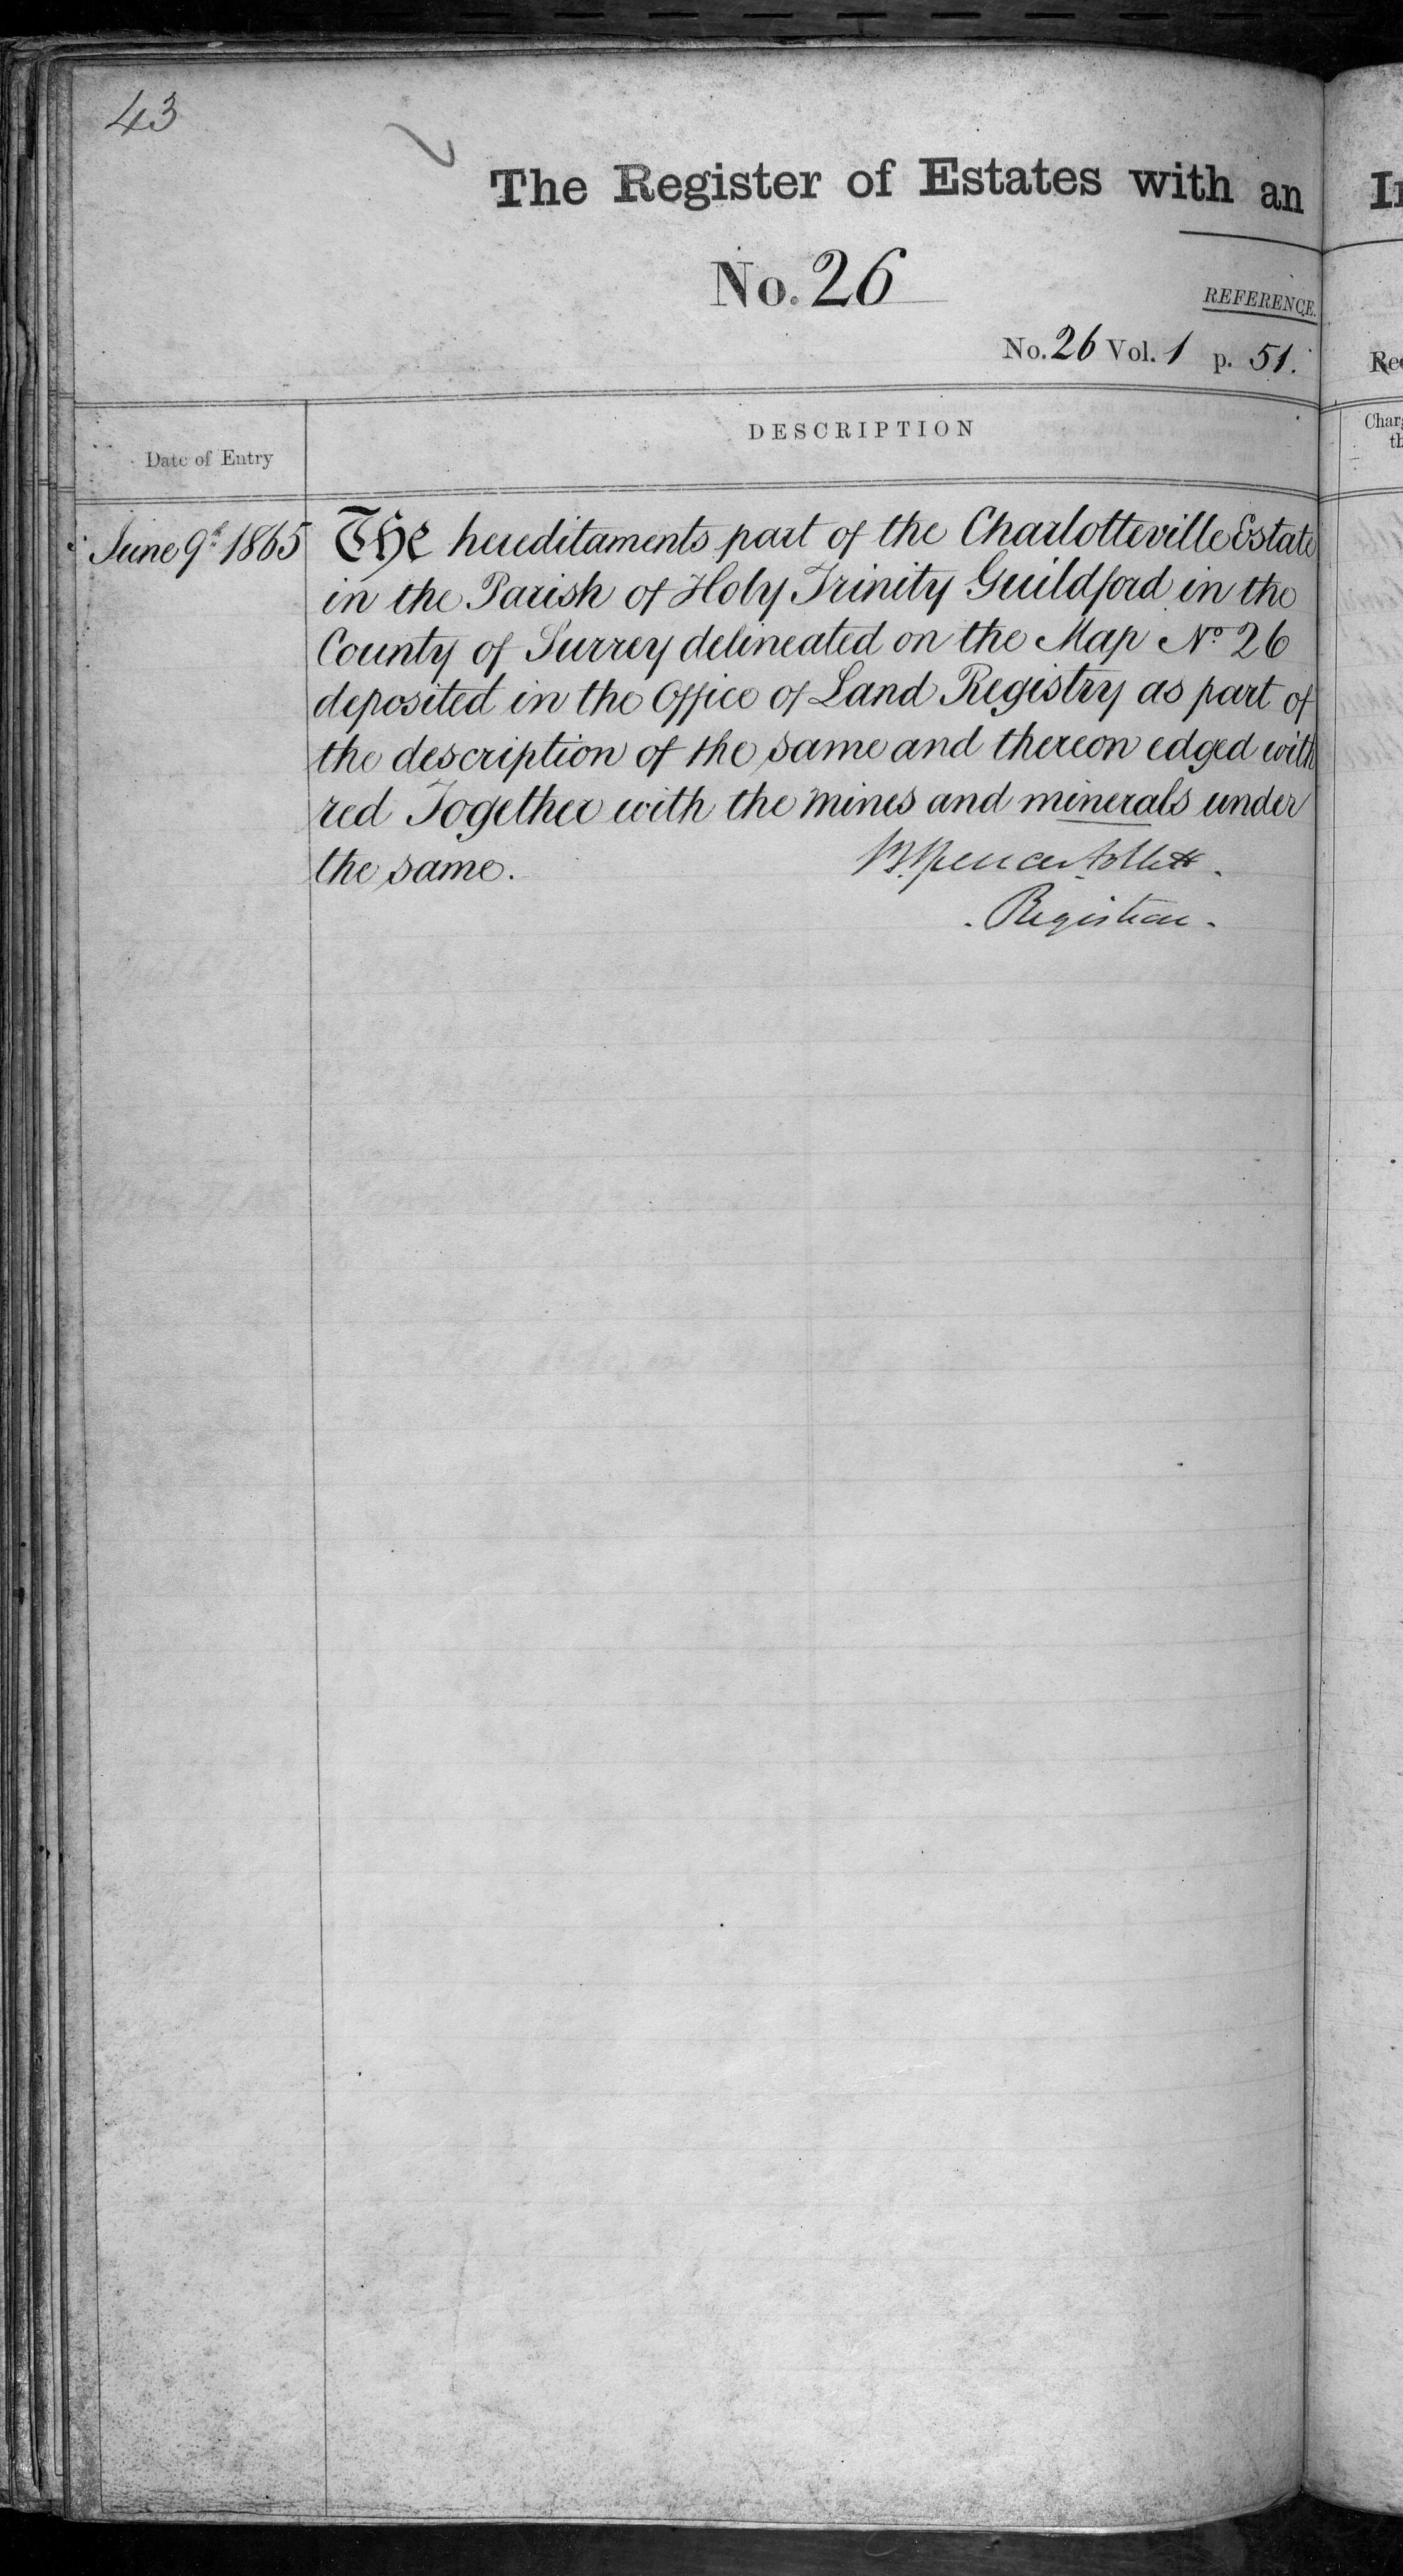 43
The Register of Estates with an
No. 26
REFERENCE.
No. 26 Vol. 1 p. 51.
Date of Entry
DESCRIPTION
June 9th 1865
The hereditaments part of the Charlotteville Estate
in the Parish of Holy Trinity Guildford in the
County of Surrey delineated on the Map No 26
deposited in the Office of Land Registry as part of
the description of the same and thereon edged with
red Together with the mines and minerals under
the same.
B. Spencer Follett.
Registrar.